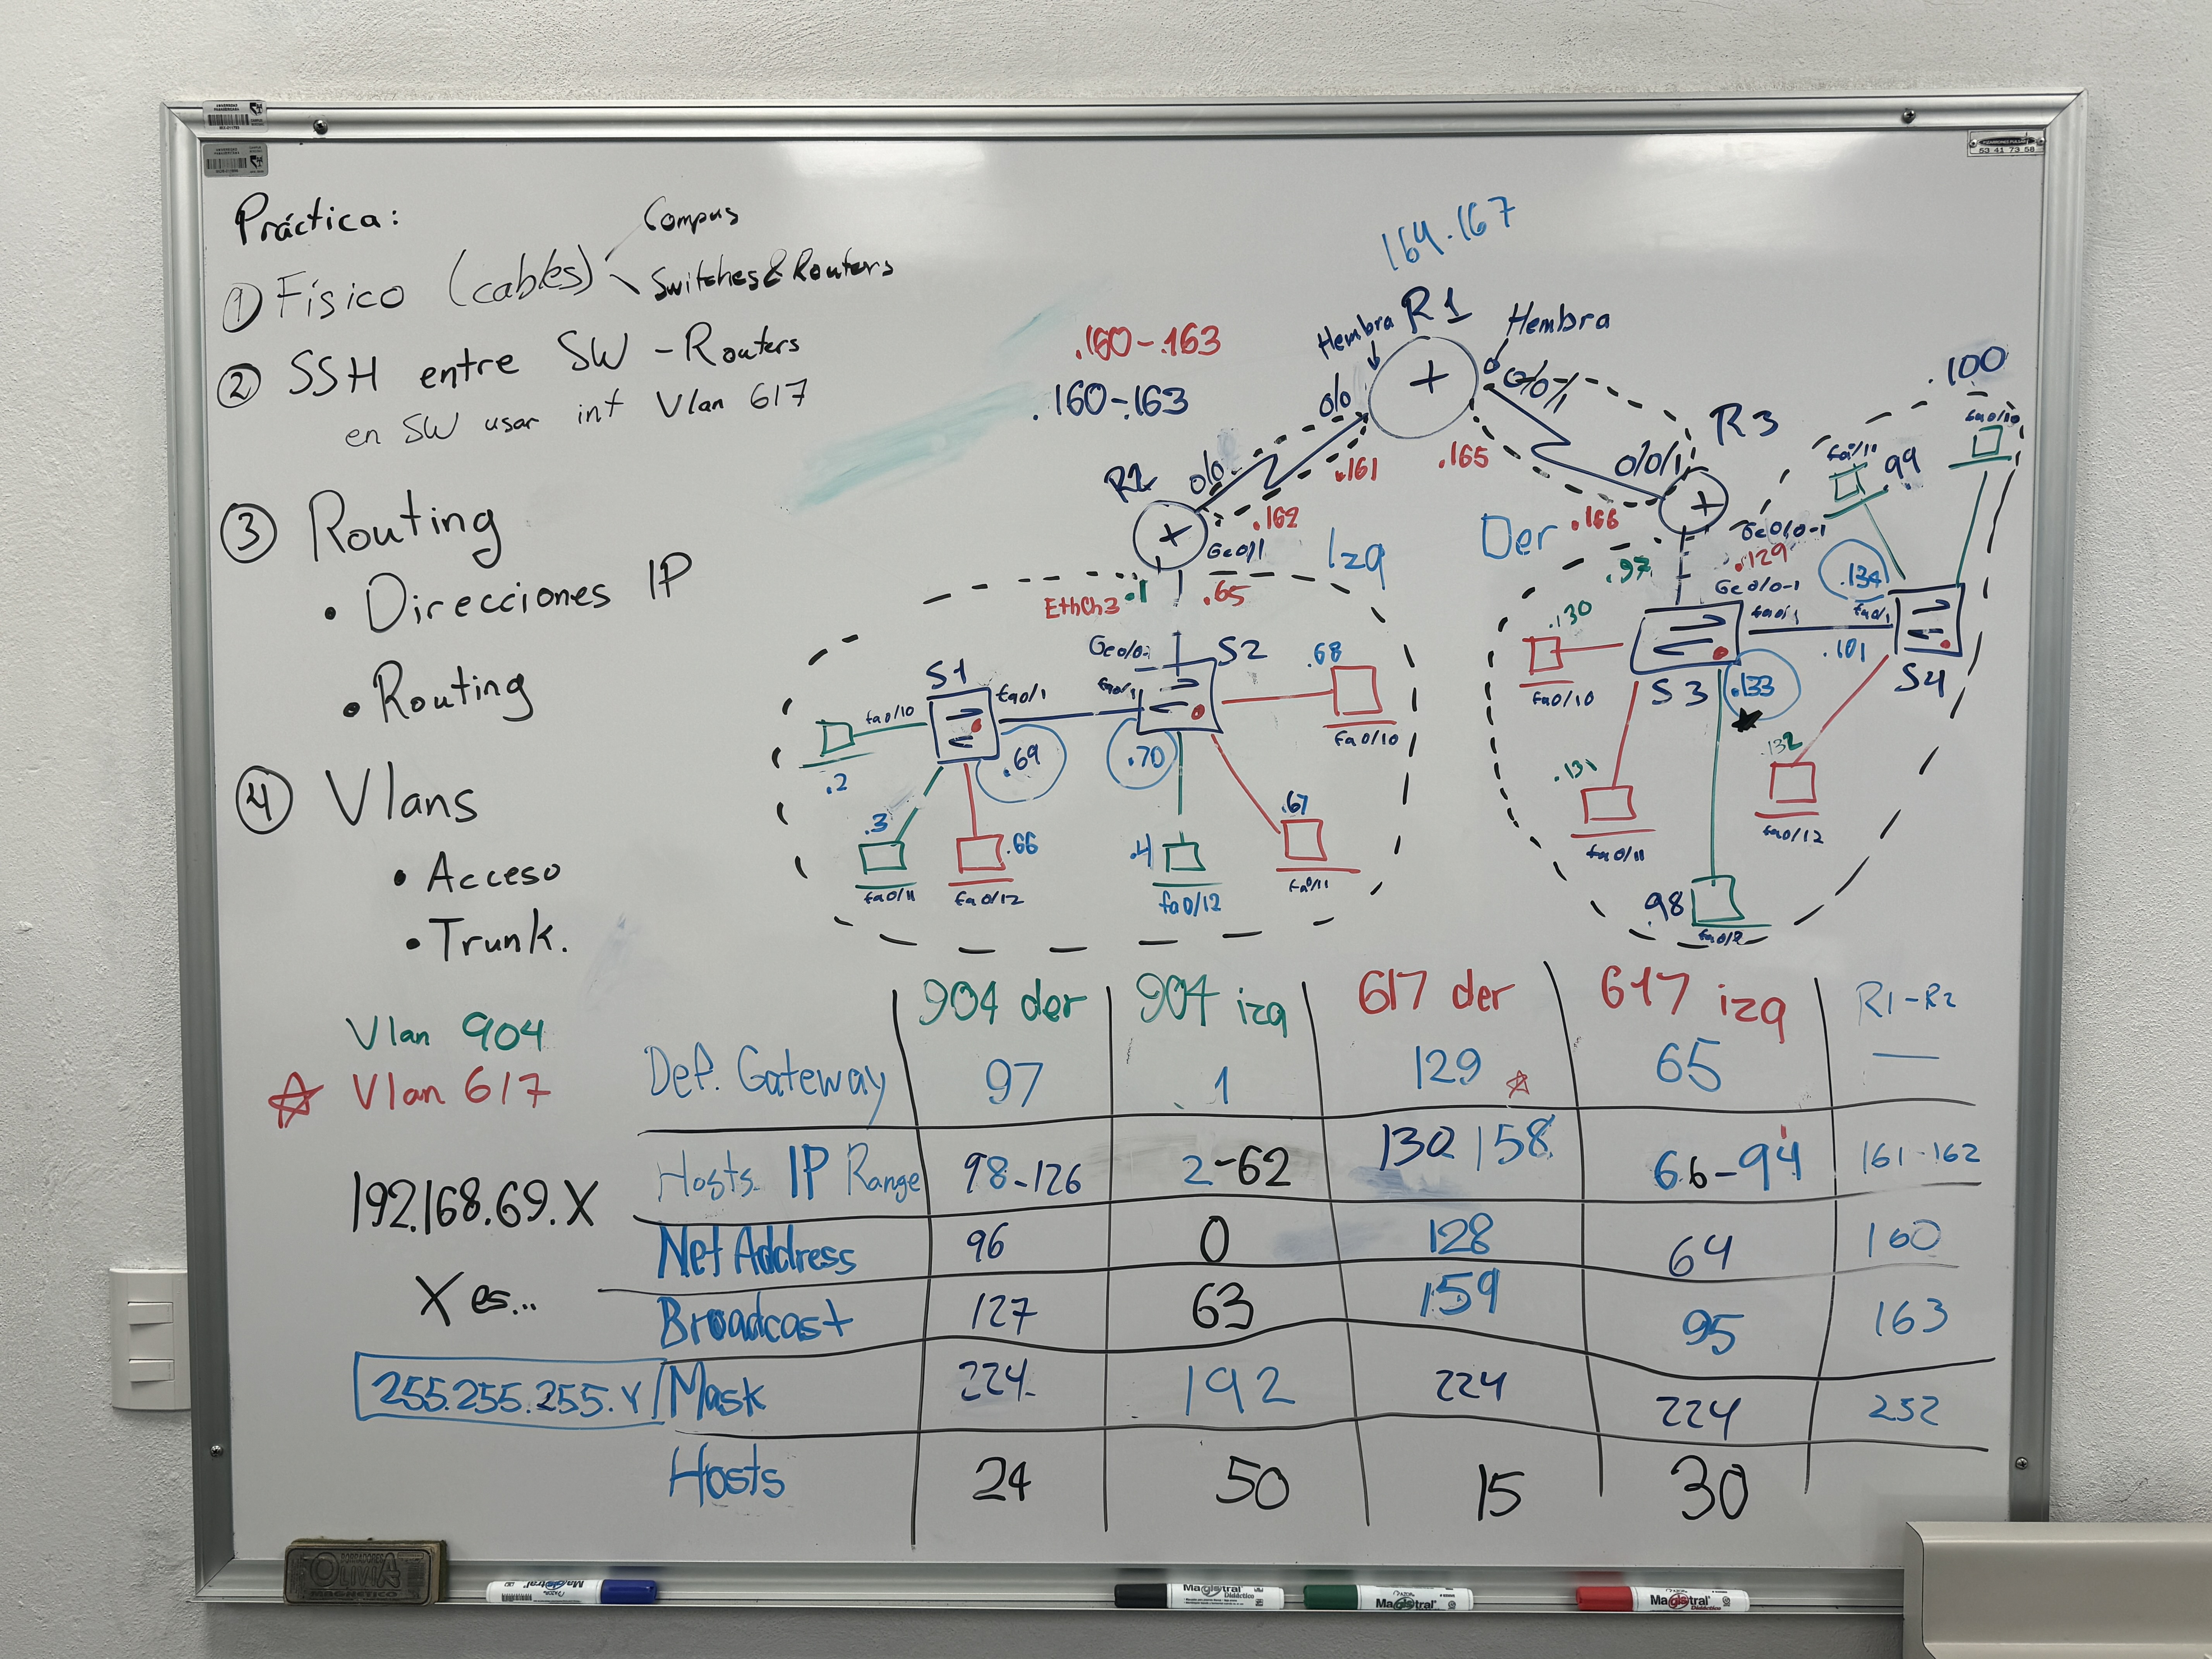 Práctica:
① Físico (cables)
Compus
Switches & Routers
② SSH entre SW - Routers
en SW usar int Vlan 617
③ Routing
• Direcciones IP
• Routing
④ Vlans
• Acceso
• Trunk.
Vlan 904
☆ Vlan 617
192.168.69.X
X es...
255.255.255.Y
164.167
.160-.163
.160-.163
Hembra R1 Hembra
0/0
0/0/1
.161
.165
R2
0/0
.162
Ge0/1
Izq
EthCh3
.1
.65
R3
0/0/1
.166
Der
Ge0/0-1
.97
.129
Ge0/0-1
.100
fa0/10
fa0/11
.99
.134
S1
fa0/10
fa0/1
.2
.69
.3
fa0/11
.66
fa0/12
S2
fa0/1
.70
.68
fa0/10
.4
fa0/12
.67
fa0/11
S3
fa0/1
.130
fa0/10
.133
.131
fa0/11
.98
S4
fa0/1
.101
.132
fa0/12
904 der 904 izq 617 der 617 izq R1-R2
Def. Gateway 97 1 129 ☆ 65 —
Hosts IP Range 98-126 2-62 130 158 66-94 161-162
Net Address 96 0 128 64 160
Broadcast 127 63 159 95 163
Mask 224 192 224 224 252
Hosts 24 50 15 30
PIZARRONES PULSAR
53 41 73 58
BORRADORES
OLIVIA
MAGNETICO
Magistral
Magistral
Magistral
Magistral